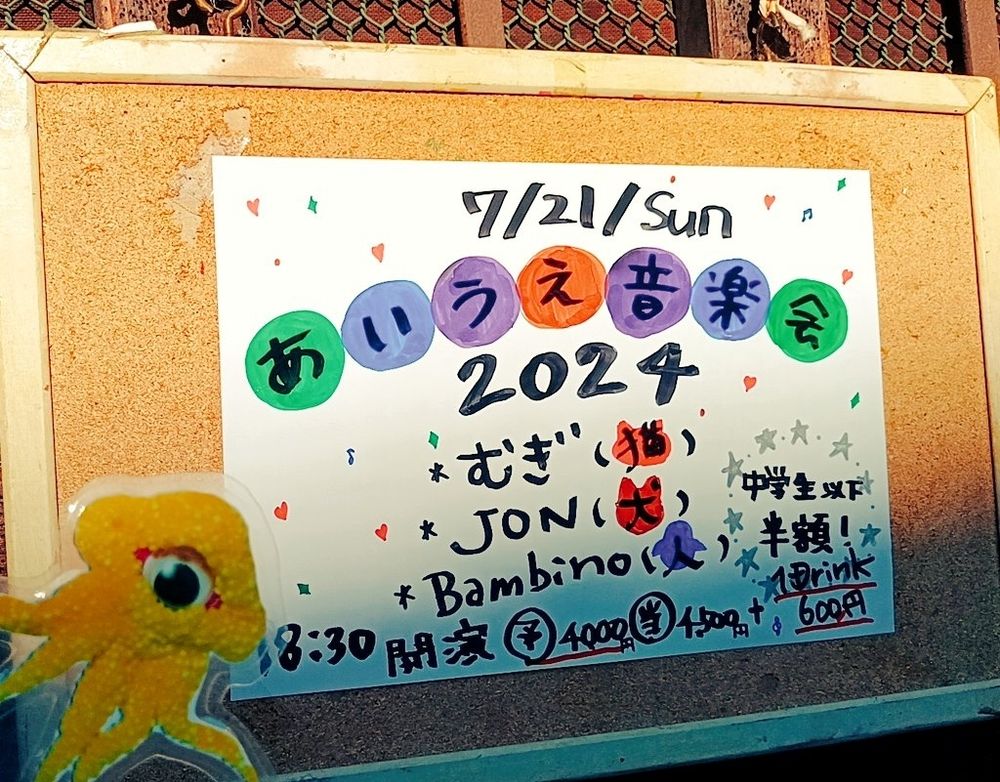 7/21/Sun
あいうえ音楽会
2024
*むぎ(猫)
*JON(犬)
*Bambino(人)
中学生以下
半額!
8:30 開演 予 4000円 当 4,500円+
1Drink
600円